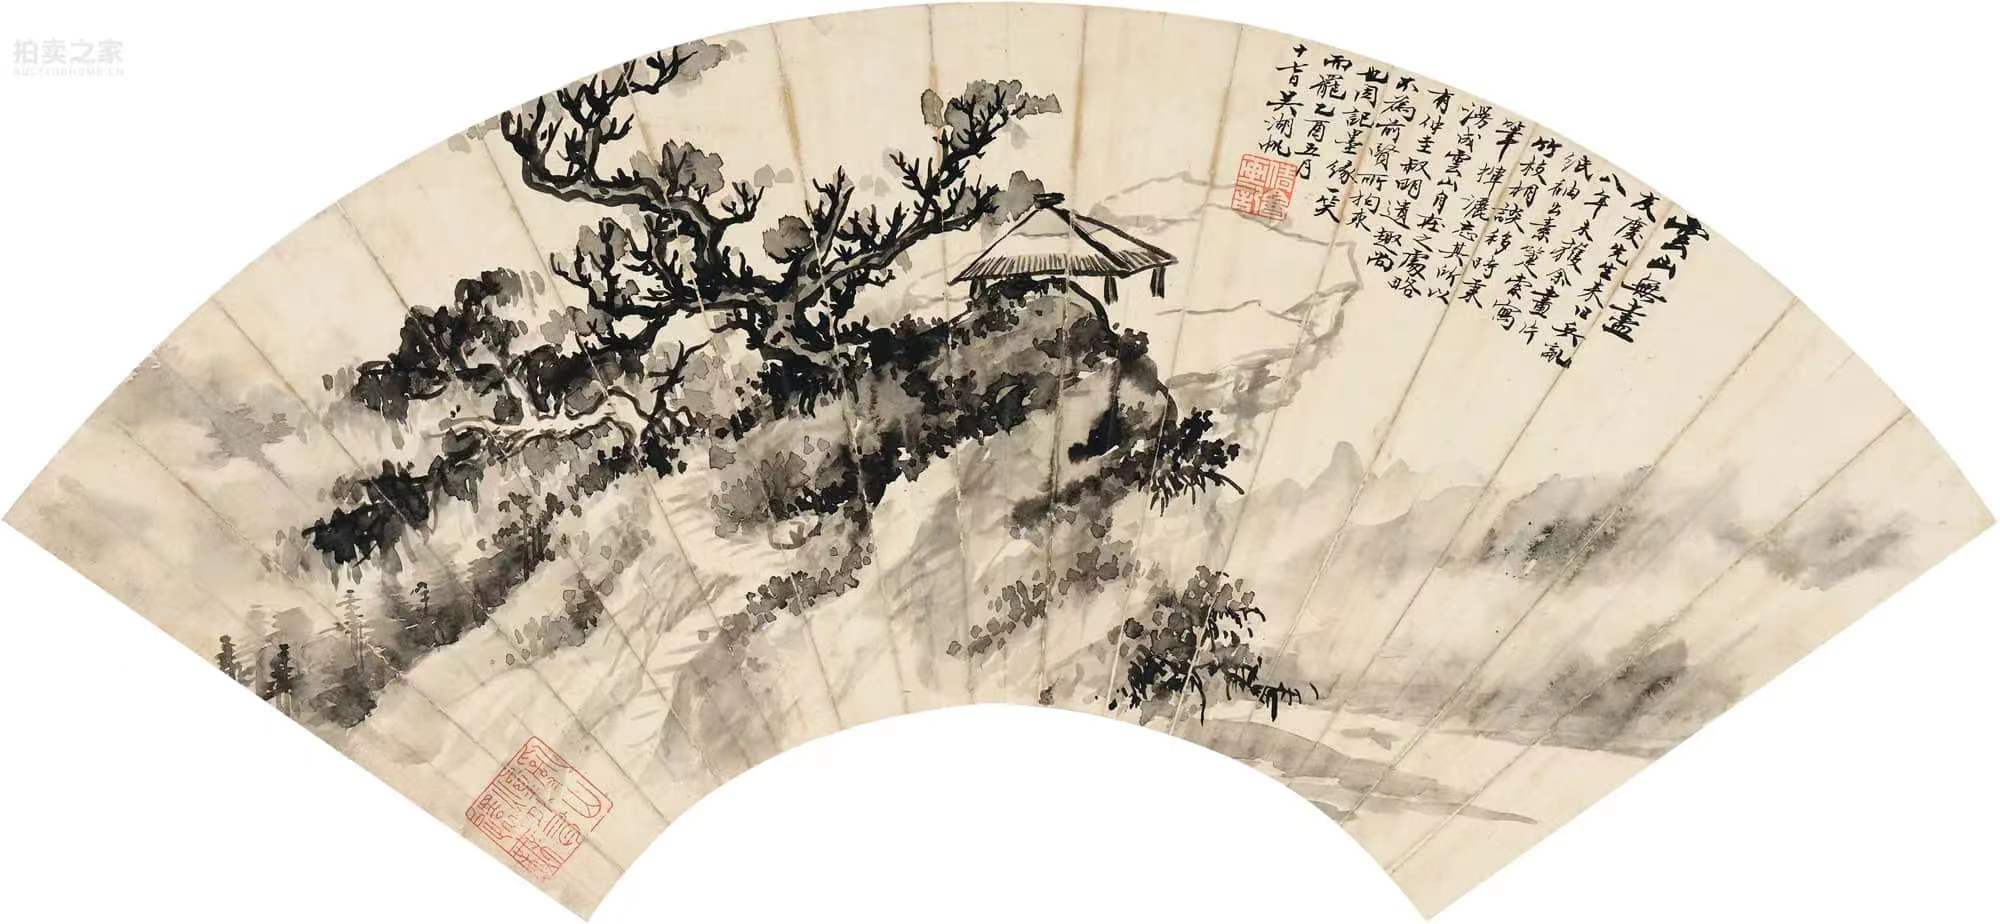 雲山無盡
友慶先生来曰兵亂
八年未獲余畫片
紙袖出素箑索寫
竹枝相談移時秉
筆揮灑忘其所以
漫成雲山自在之處略
有仲圭叔明遺趣尚
不為前賢所拘束
也因記墨緣一笑
而罷乙酉五月
十日吳湖帆
拍卖之家
AUCTIONHOME.CN